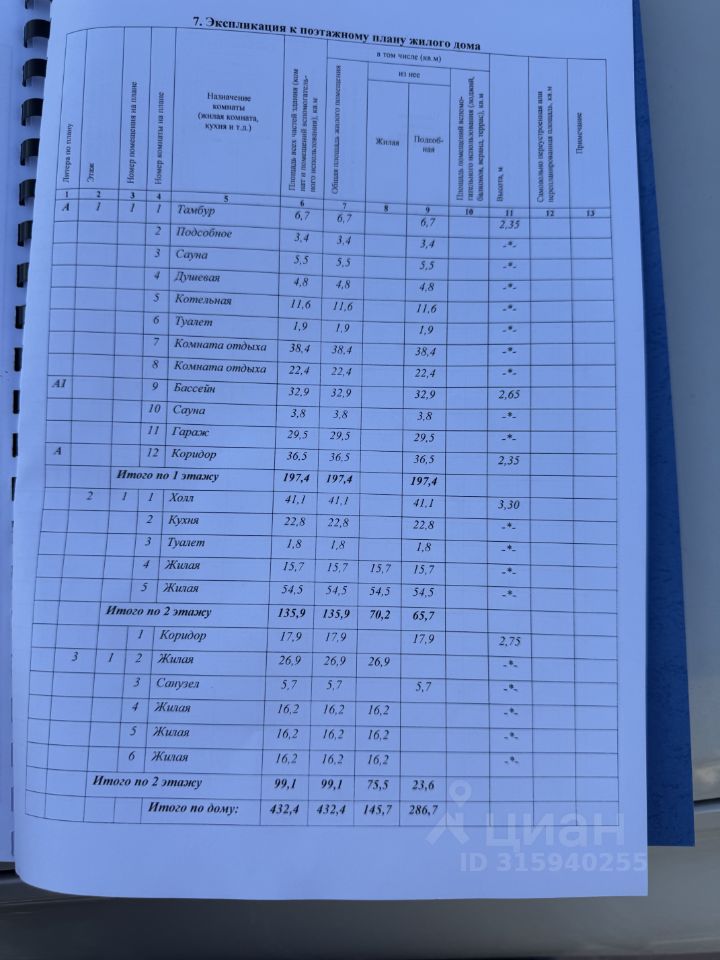 7. Экспликация к поэтажному плану жилого дома
Литера по плану
Этаж
Номер помещения на плане
Номер комнаты на плане
Назначение
комнаты
(жилая комната,
кухня и т.д.)
Площадь всех частей здания (ком
нат и помещений вспомогатель-
ного использования), кв.м
в том числе (кв.м)
Общая площадь жилого помещения
из нее
Жилая
Подсоб-
ная
Площадь помещений вспомо-
гательного использования (лоджий,
балконов, веранд, террас), кв.м
Высота, м
Самовольно переустроенная или
перепланированная площадь, кв.м
Примечание
1 2 3 4 5 6 7 8 9 10 11 12 13
А 1 1 1 Тамбур 6,7 6,7 6,7 2,35
2 Подсобное 3,4 3,4 3,4 -*-
3 Сауна 5,5 5,5 5,5 -*-
4 Душевая 4,8 4,8 4,8 -*-
5 Котельная 11,6 11,6 11,6 -*-
6 Туалет 1,9 1,9 1,9 -*-
7 Комната отдыха 38,4 38,4 38,4 -*-
8 Комната отдыха 22,4 22,4 22,4 -*-
А1 9 Бассейн 32,9 32,9 32,9 2,65
10 Сауна 3,8 3,8 3,8 -*-
11 Гараж 29,5 29,5 29,5 -*-
А 12 Коридор 36,5 36,5 36,5 2,35
Итого по 1 этажу 197,4 197,4 197,4
2 1 1 Холл 41,1 41,1 41,1 3,30
2 Кухня 22,8 22,8 22,8 -*-
3 Туалет 1,8 1,8 1,8 -*-
4 Жилая 15,7 15,7 15,7 15,7 -*-
5 Жилая 54,5 54,5 54,5 54,5 -*-
Итого по 2 этажу 135,9 135,9 70,2 65,7
1 Коридор 17,9 17,9 17,9 2,75
3 1 2 Жилая 26,9 26,9 26,9 -*-
3 Санузел 5,7 5,7 5,7 -*-
4 Жилая 16,2 16,2 16,2 -*-
5 Жилая 16,2 16,2 16,2 -*-
6 Жилая 16,2 16,2 16,2 -*-
Итого по 2 этажу 99,1 99,1 75,5 23,6
Итого по дому: 432,4 432,4 145,7 286,7
циан
ID 315940255